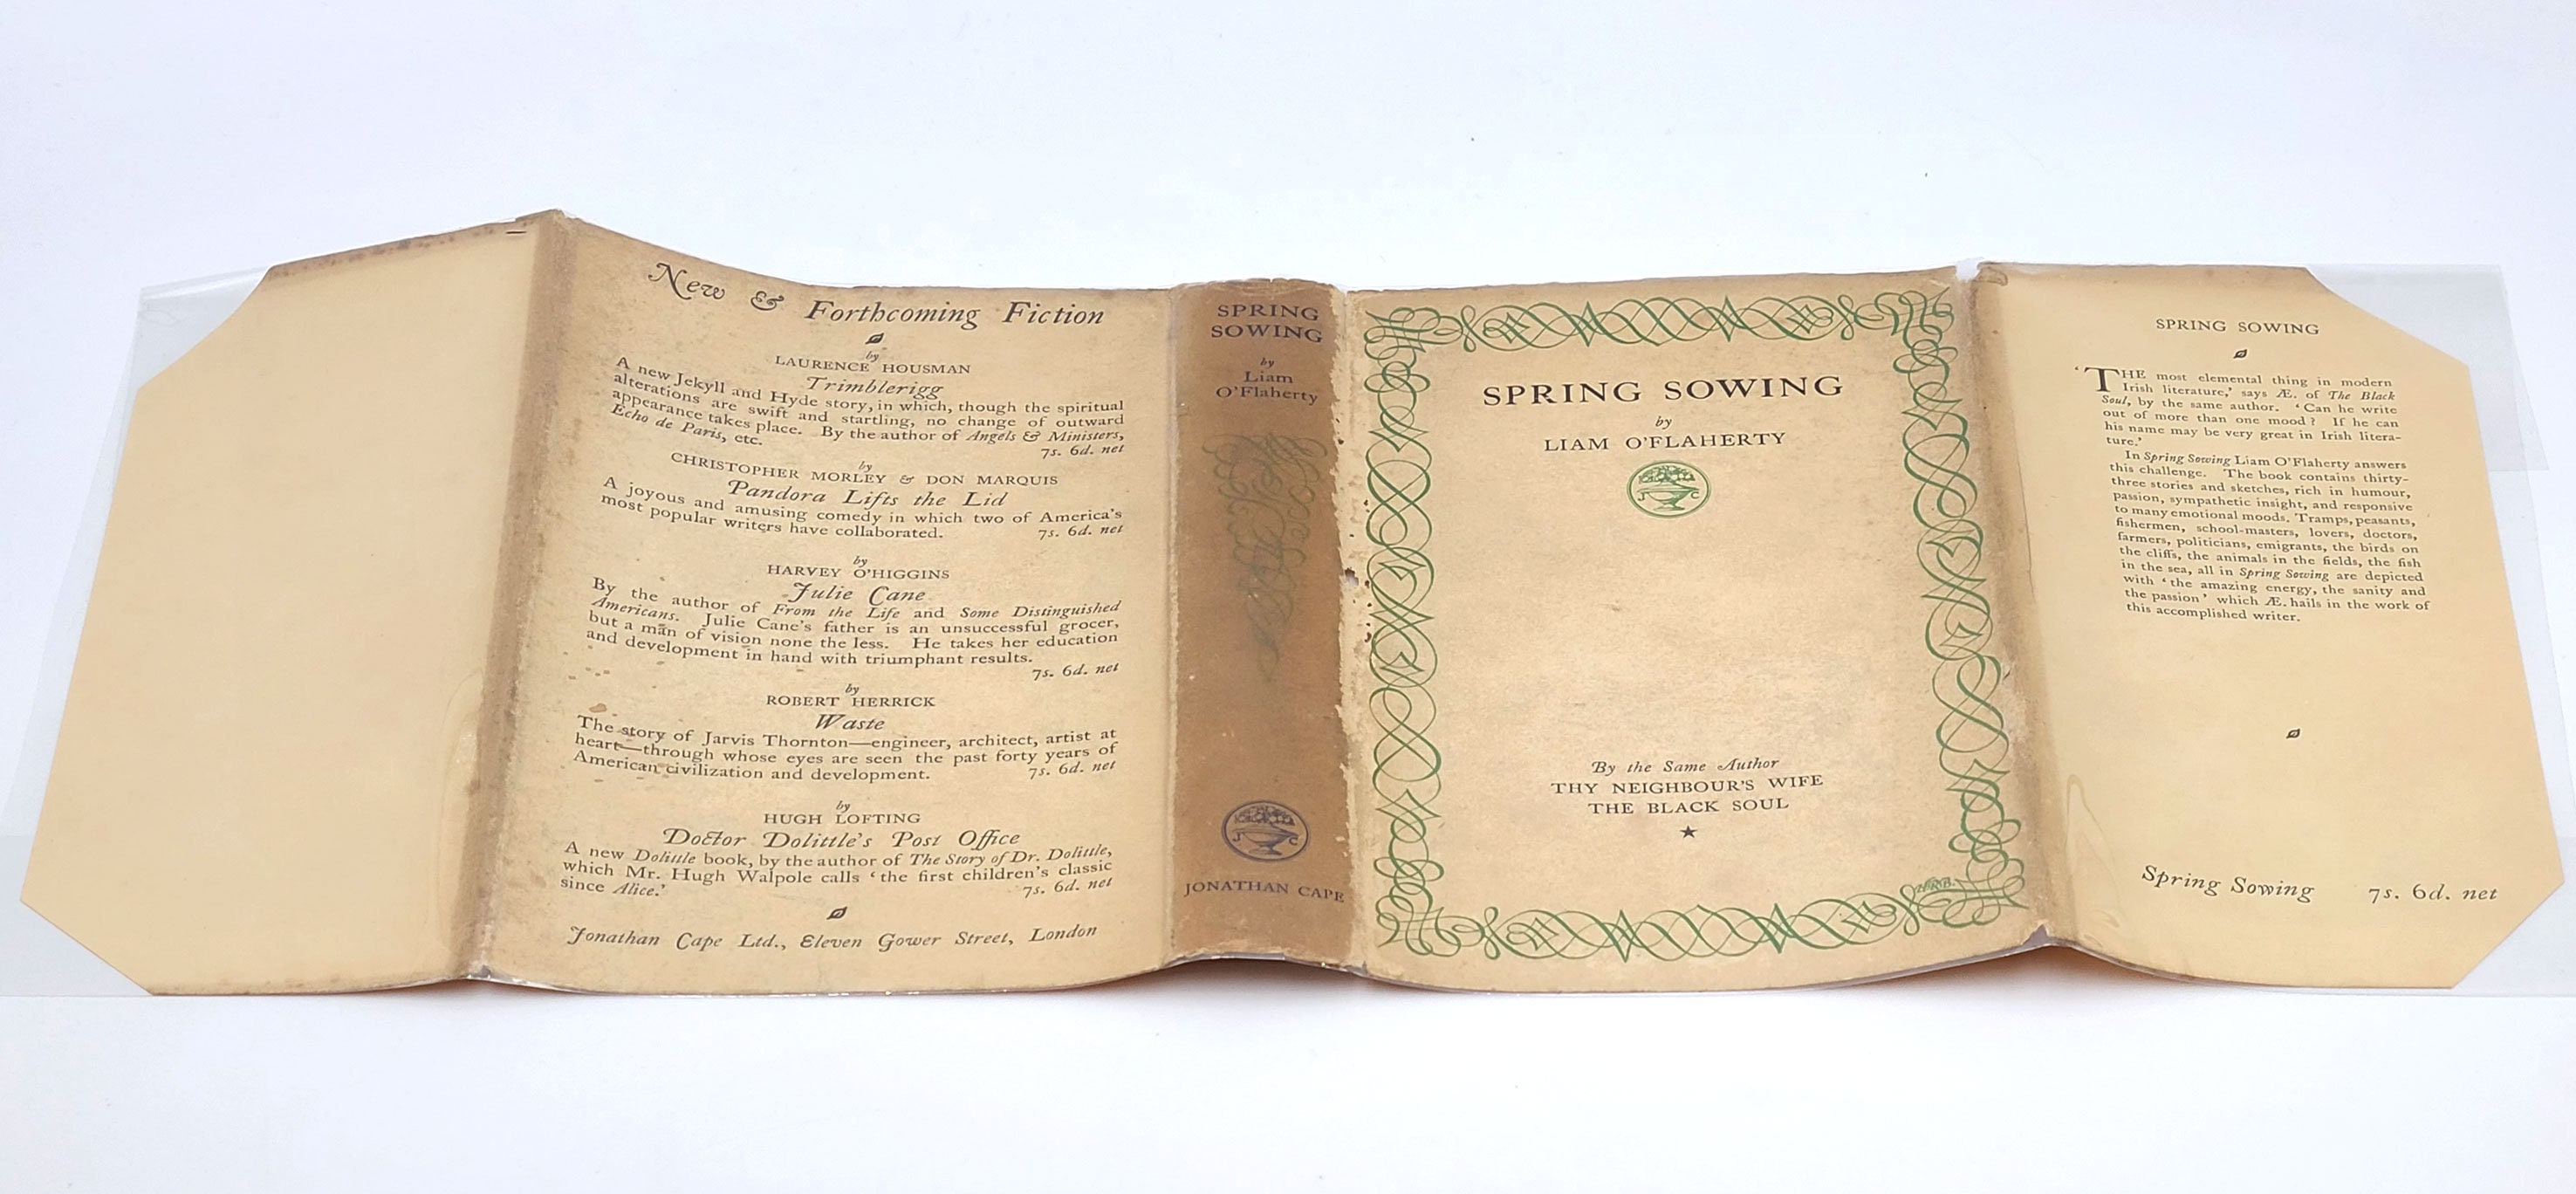 New & Forthcoming Fiction
by
LAURENCE HOUSMAN
Trimblerigg
A new Jekyll and Hyde story, in which, though the spiritual
alterations are swift and startling, no change of outward
appearance takes place. By the author of Angels & Ministers,
Echo de Paris, etc.
7s. 6d. net
by
CHRISTOPHER MORLEY & DON MARQUIS
Pandora Lifts the Lid
A joyous and amusing comedy in which two of America's
most popular writers have collaborated.
7s. 6d. net
by
HARVEY O'HIGGINS
Julie Cane
By the author of From the Life and Some Distinguished
Americans. Julie Cane's father is an unsuccessful grocer,
but a man of vision none the less. He takes her education
and development in hand with triumphant results.
7s. 6d. net
by
ROBERT HERRICK
Waste
The story of Jarvis Thornton—engineer, architect, artist at
heart—through whose eyes are seen the past forty years of
American civilization and development.
7s. 6d. net
by
HUGH LOFTING
Doctor Dolittle's Post Office
A new Dolittle book, by the author of The Story of Dr. Dolittle,
which Mr. Hugh Walpole calls 'the first children's classic
since Alice.'
7s. 6d. net
Jonathan Cape Ltd., Eleven Gower Street, London
SPRING
SOWING
by
Liam
O'Flaherty
J C
JONATHAN CAPE
SPRING SOWING
by
LIAM O'FLAHERTY
J C
By the Same Author
THY NEIGHBOUR'S WIFE
THE BLACK SOUL
SPRING SOWING
'THE most elemental thing in modern
Irish literature,' says Æ. of The Black
Soul, by the same author. 'Can he write
out of more than one mood? If he can
his name may be very great in Irish litera-
ture.'
In Spring Sowing Liam O'Flaherty answers
this challenge. The book contains thirty-
three stories and sketches, rich in humour,
passion, sympathetic insight, and responsive
to many emotional moods. Tramps, peasants,
fishermen, school-masters, lovers, doctors,
farmers, politicians, emigrants, the birds on
the cliffs, the animals in the fields, the fish
in the sea, all in Spring Sowing are depicted
with 'the amazing energy, the sanity and
the passion' which Æ. hails in the work of
this accomplished writer.
Spring Sowing 7s. 6d. net